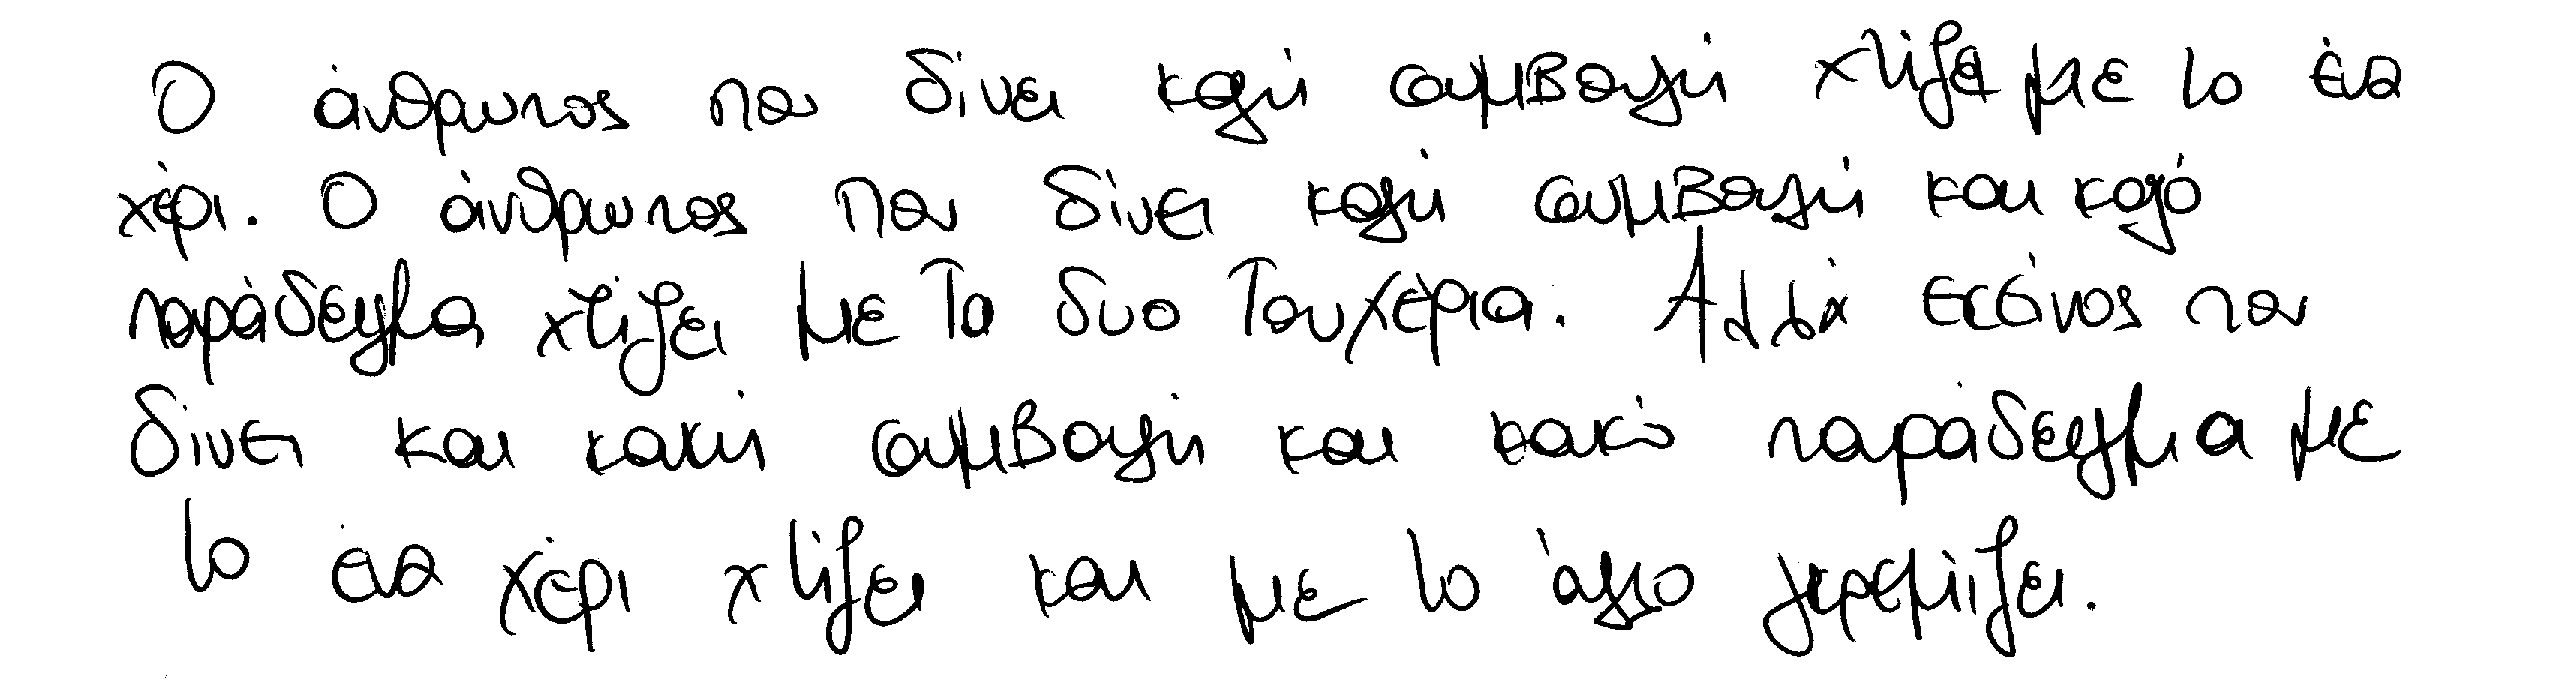 Ο άνθρωπος που δίνει καλή συμβουλή χτίζει με το ένα
χέρι. Ο άνθρωπος που δίνει καλή συμβουλή και καλό
παράδειγμα χτίζει με τα δυο του χέρια. Αλλά εκείνος που
δίνει και κακή συμβουλή και κακό παράδειγμα με
το ένα χέρι χτίζει και με το άλλο γκρεμίζει.